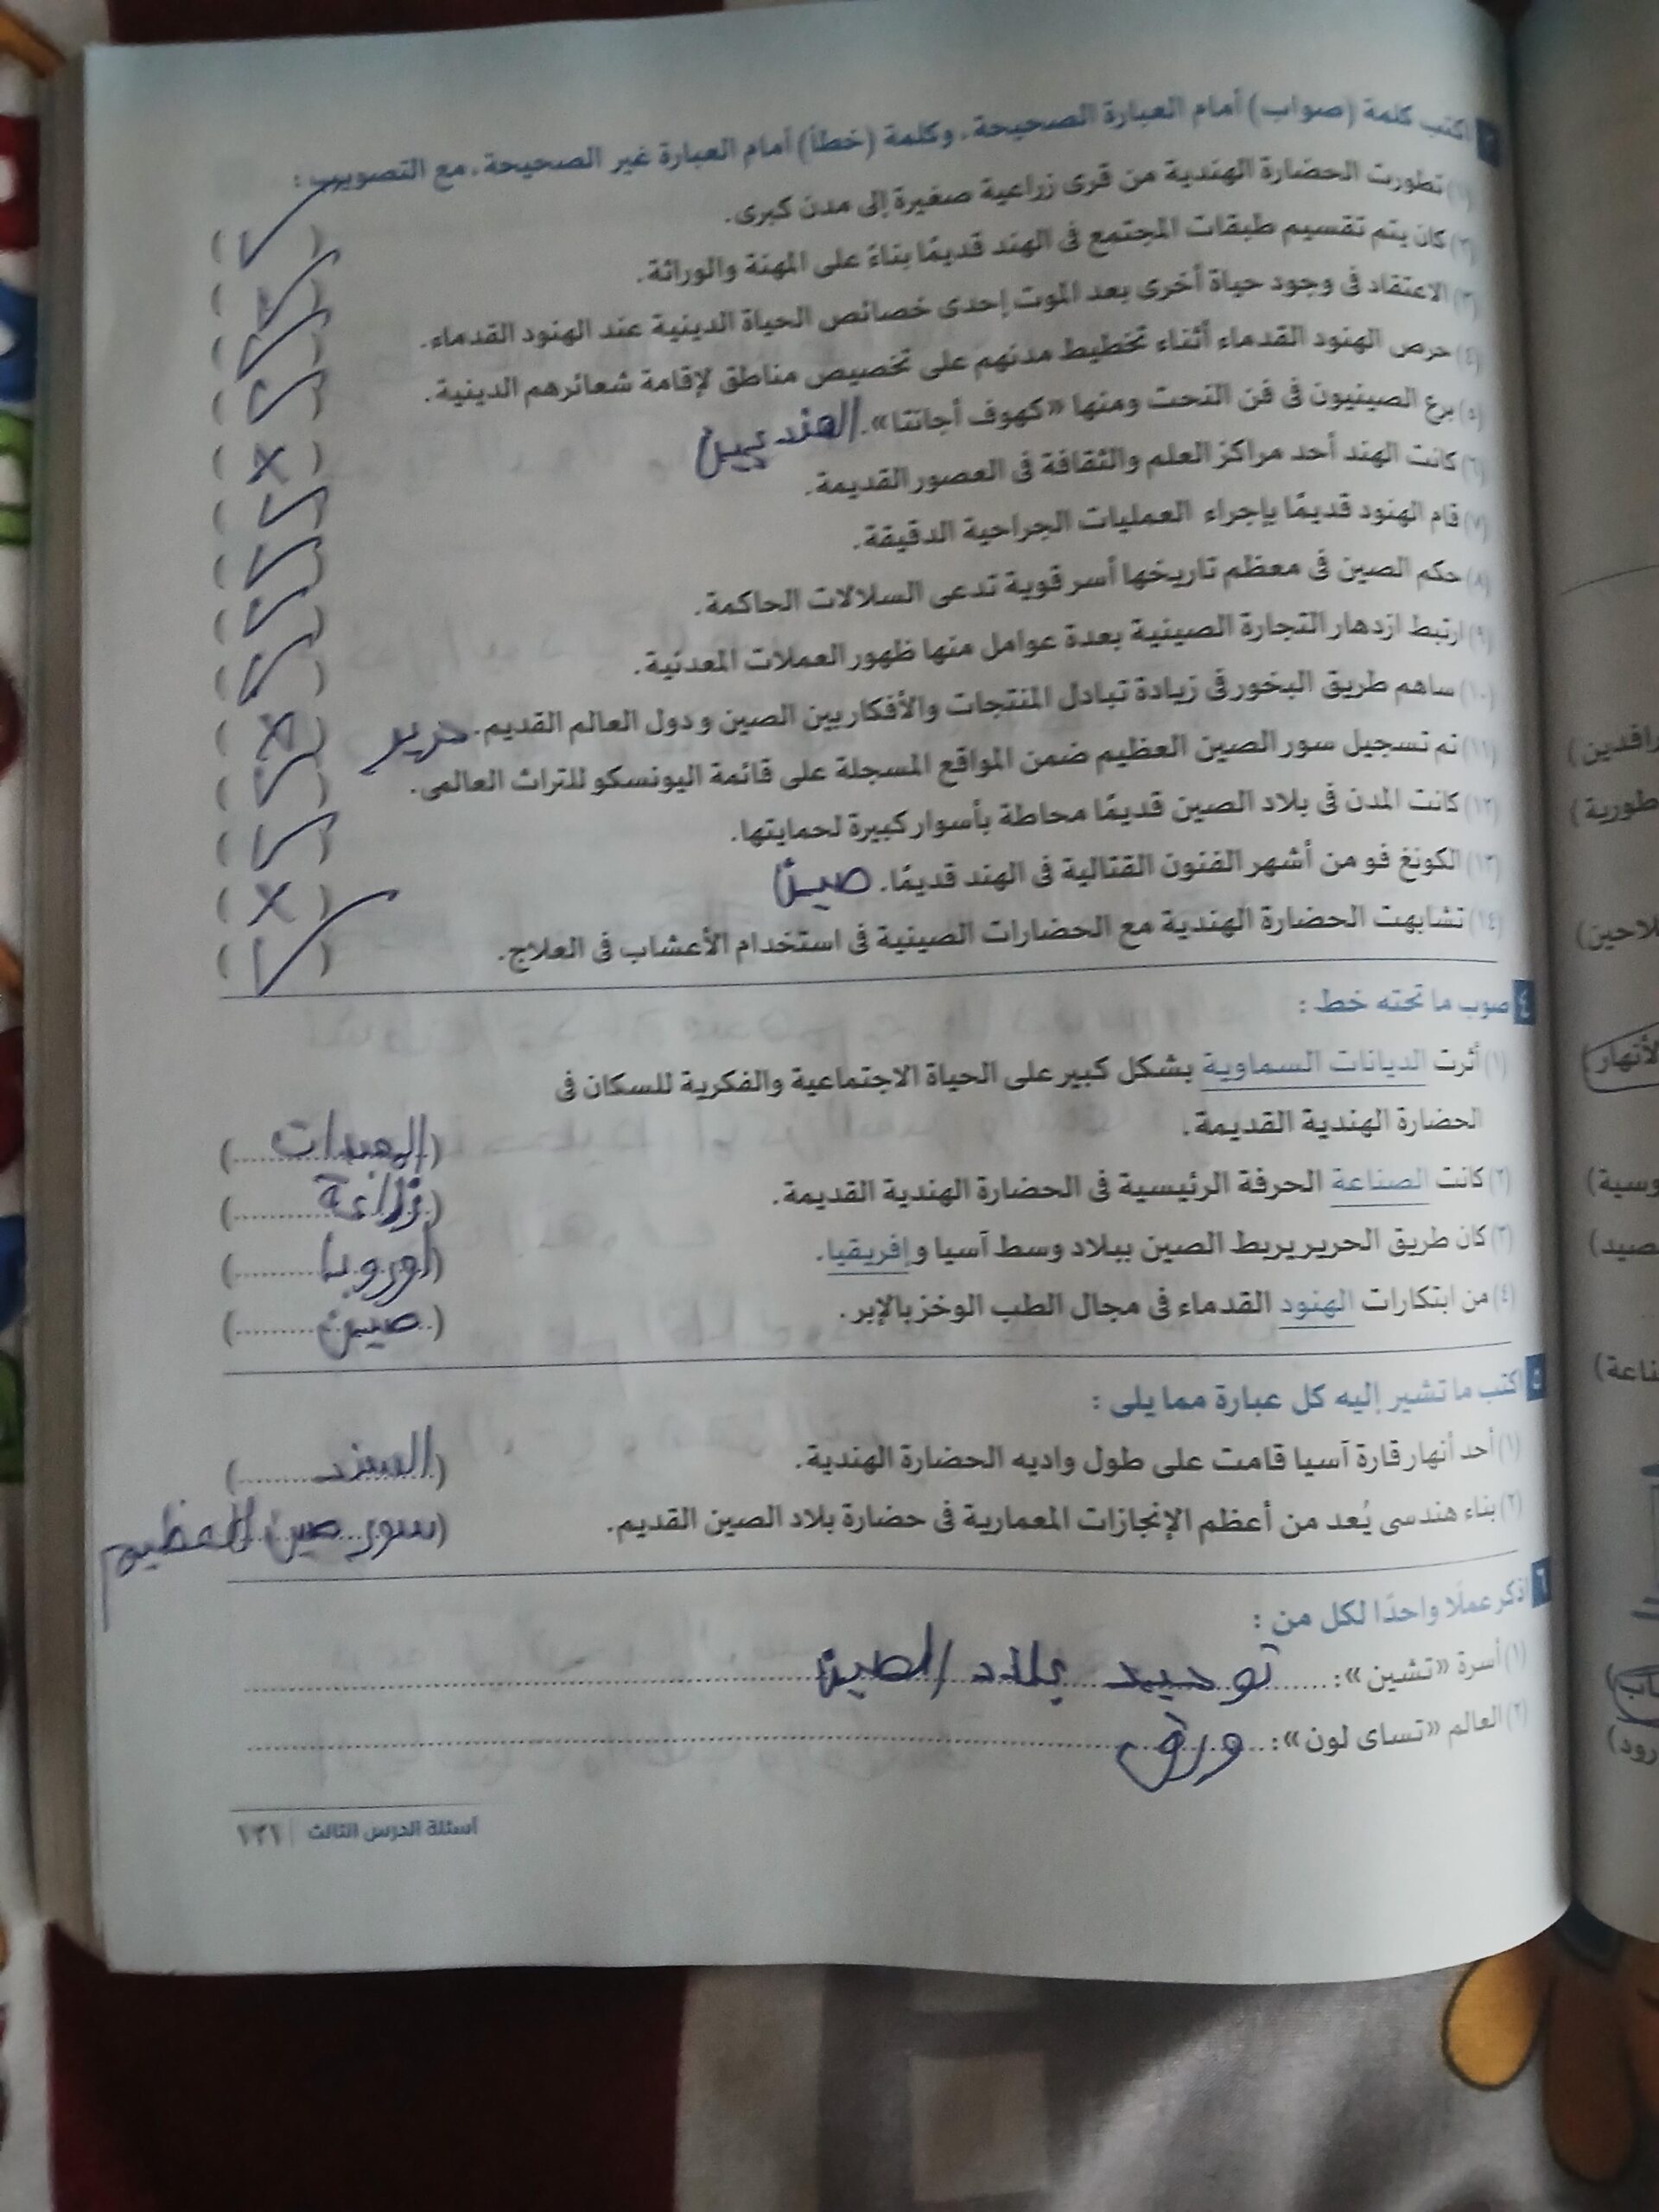 ٣ اكتب كلمة (صواب) أمام العبارة الصحيحة، وكلمة (خطأ) أمام العبارة غير الصحيحة، مع التصويب :
(١) تطورت الحضارة الهندية من قرى زراعية صغيرة إلى مدن كبرى. ( ✓ )
(٢) كان يتم تقسيم طبقات المجتمع فى الهند قديمًا بناءً على المهنة والوراثة. ( ✓ )
(٣) الاعتقاد فى وجود حياة أخرى بعد الموت إحدى خصائص الحياة الدينية عند الهنود القدماء. ( ✓ )
(٤) حرص الهنود القدماء أثناء تخطيط مدنهم على تخصيص مناطق لإقامة شعائرهم الدينية. ( ✓ )
(٥) برع الصينيون فى فن النحت ومنها «كهوف أجانتا». الهنديين ( × )
(٦) كانت الهند أحد مراكز العلم والثقافة فى العصور القديمة. ( ✓ )
(٧) قام الهنود قديمًا بإجراء العمليات الجراحية الدقيقة. ( ✓ )
(٨) حكم الصين فى معظم تاريخها أسر قوية تدعى السلالات الحاكمة. ( ✓ )
(٩) ارتبط ازدهار التجارة الصينية بعدة عوامل منها ظهور العملات المعدنية. ( ✓ )
(١٠) ساهم طريق البخور فى زيادة تبادل المنتجات والأفكار بين الصين و دول العالم القديم. حرير ( × )
(١١) تم تسجيل سور الصين العظيم ضمن المواقع المسجلة على قائمة اليونسكو للتراث العالمى. ( ✓ )
(١٢) كانت المدن فى بلاد الصين قديمًا محاطة بأسوار كبيرة لحمايتها. ( ✓ )
(١٣) الكونغ فو من أشهر الفنون القتالية فى الهند قديمًا. صين ( × )
(١٤) تشابهت الحضارة الهندية مع الحضارات الصينية فى استخدام الأعشاب فى العلاج. ( ✓ )
٤ صوب ما تحته خط :
(١) أثرت الديانات السماوية بشكل كبير على الحياة الاجتماعية والفكرية للسكان فى
الحضارة الهندية القديمة. (..........)
(٢) كانت الصناعة الحرفة الرئيسية فى الحضارة الهندية القديمة. (زراعة)
(٣) كان طريق الحرير يربط الصين ببلاد وسط آسيا و إفريقيا. (أوروبا)
(٤) من ابتكارات الهنود القدماء فى مجال الطب الوخز بالإبر. (صين)
٥ اكتب ما تشير إليه كل عبارة مما يلى :
(١) أحد أنهار قارة آسيا قامت على طول واديه الحضارة الهندية. (السند)
(٢) بناء هندسى يُعد من أعظم الإنجازات المعمارية فى حضارة بلاد الصين القديم. (سور صين العظيم
٦ اذكر عملًا واحدًا لكل من :
(١) أسرة «تشين»: توحيد بلاد الصين
(٢) العالم «تساى لون»: ورق
أسئلة الدرس الثالث
رافدين)
طورية)
لاحين)
الأنهار)
وسية)
صيد)
ناعة)
رود)